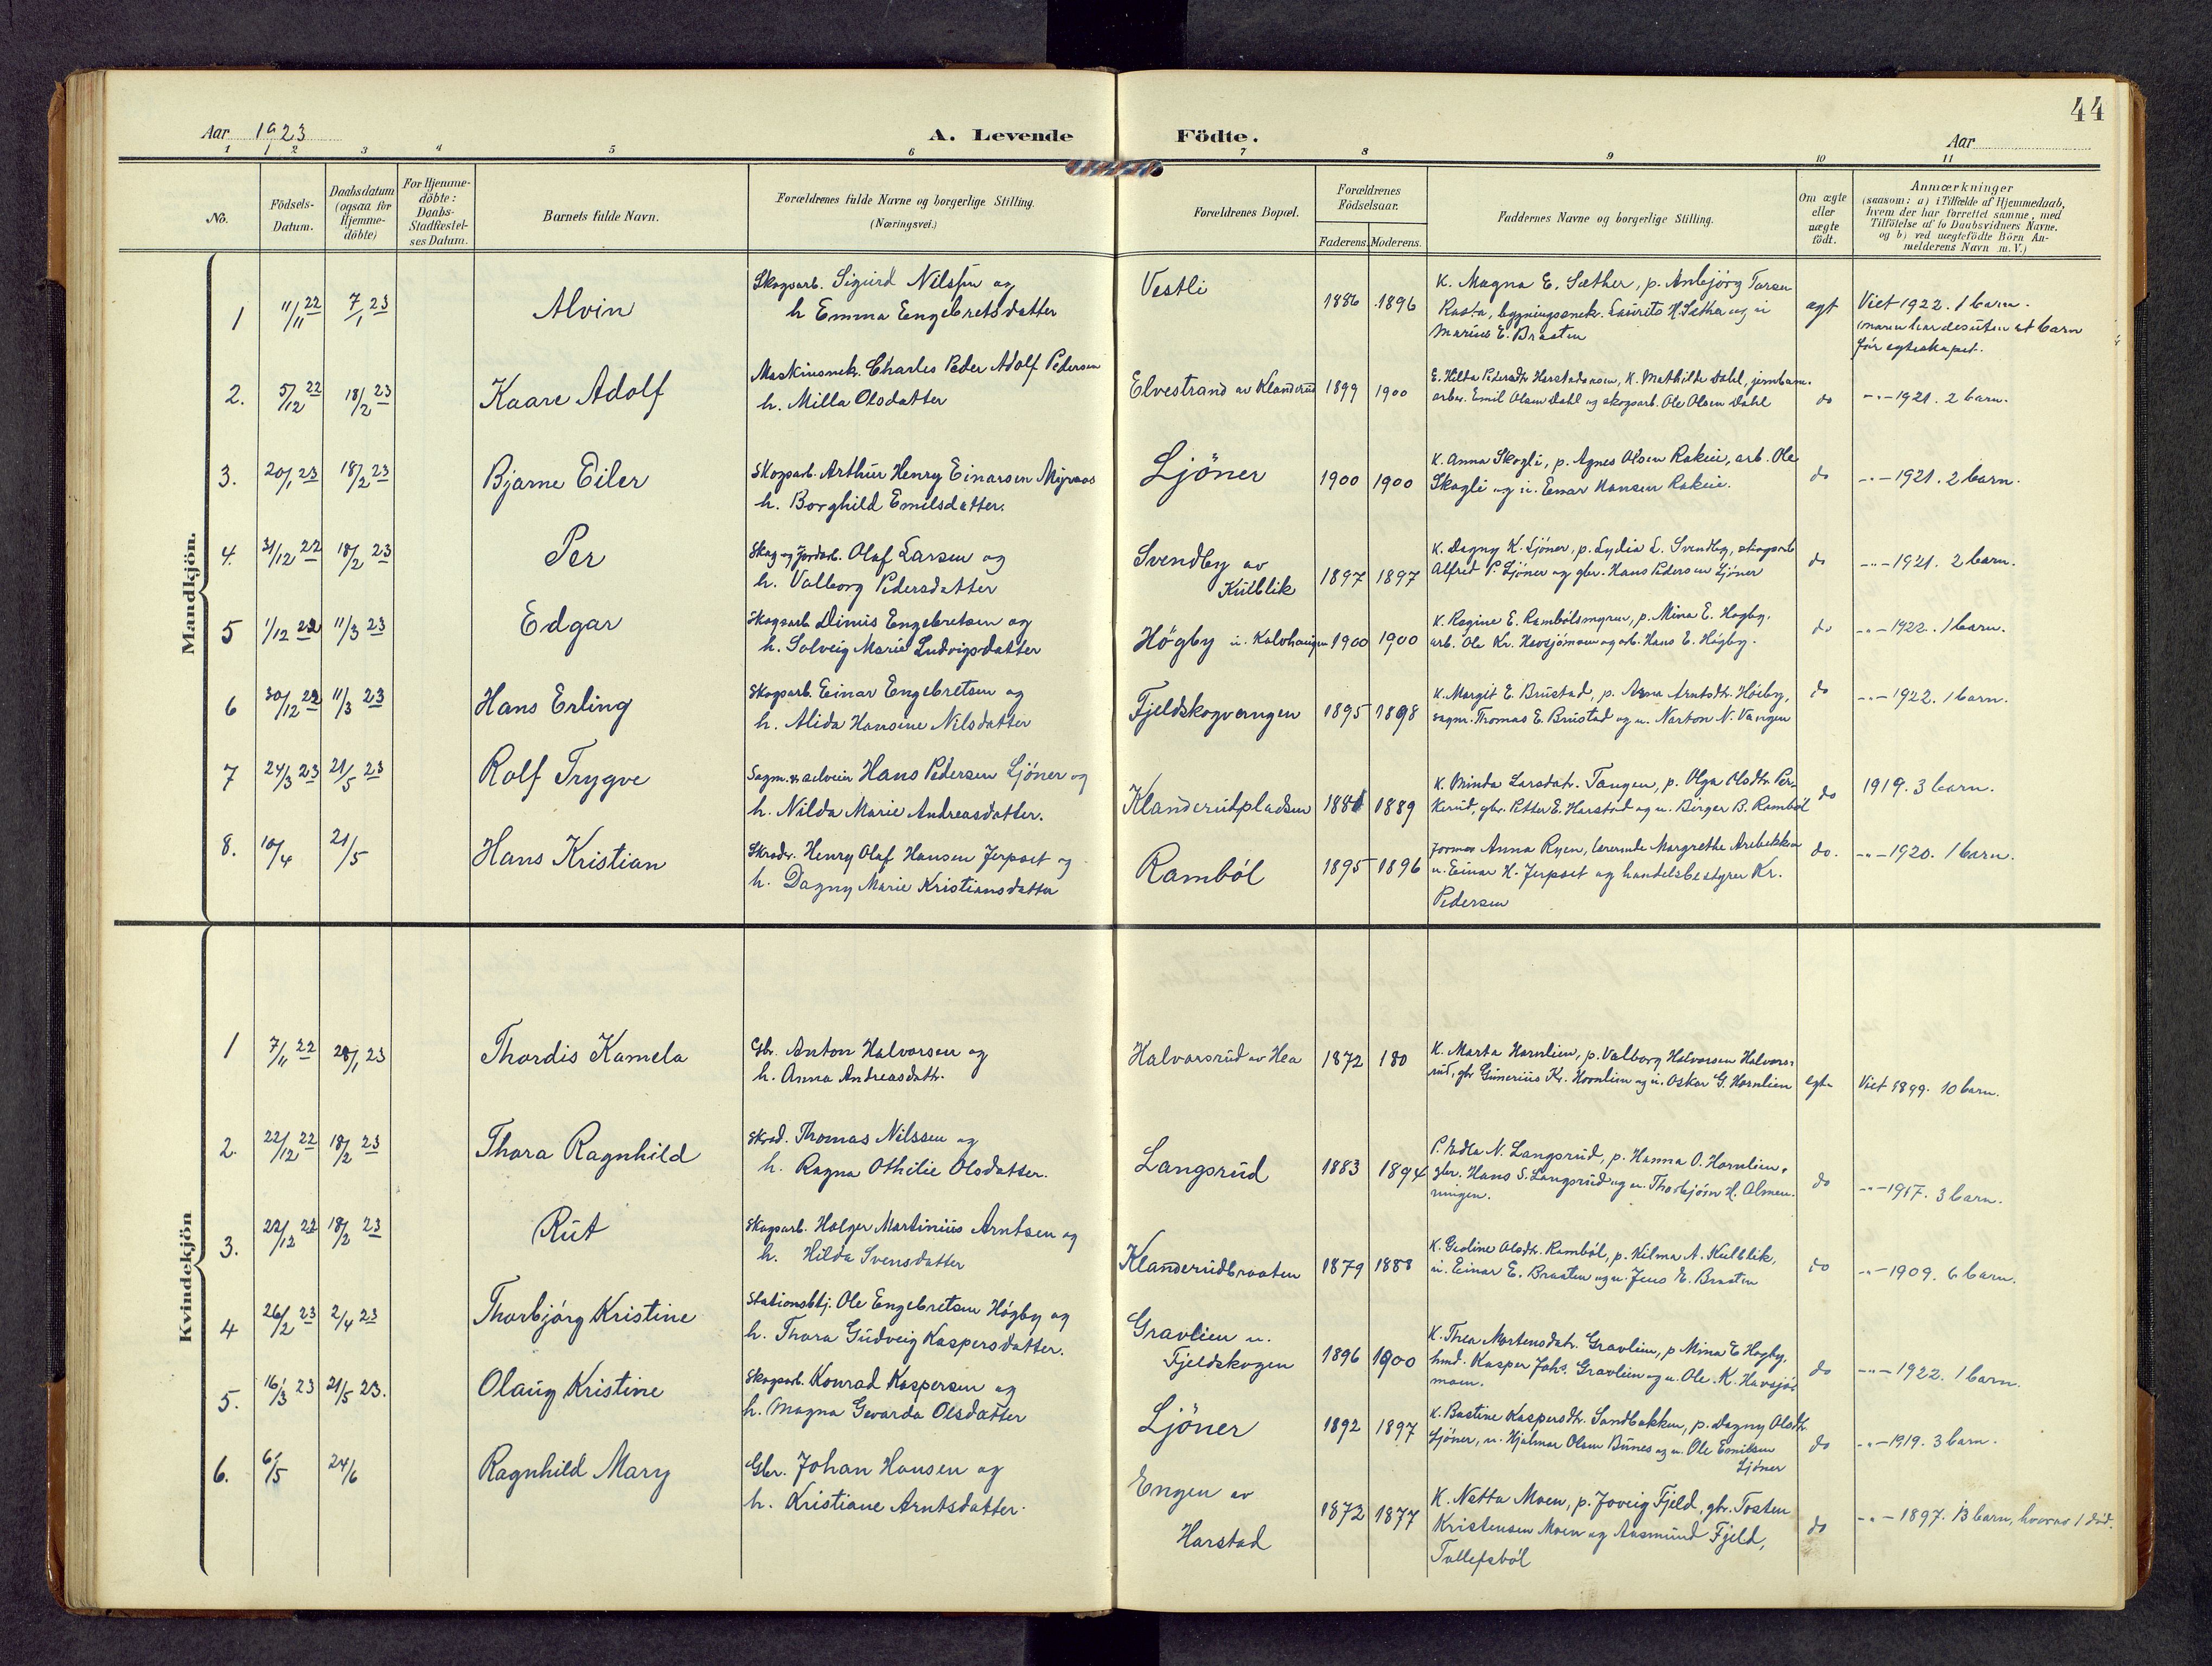 44
Aar 1923
A. Levende Födte.
Aar
1 2 3 4 5 6 7 8 9 10 11
No.
Födsels-
Datum.
Daabsdatum
(ogsaa for
Hjemme-
döbte)
For Hjemme-
döbte:
Daabs-
Stadfæstel-
ses Datum.
Barnets fulde Navn.
Forældrenes fulde Navne og borgerlige Stilling.
(Næringsvei.)
Forældrenes Bopæl.
Forældrenes
Födselsaar.
Faderens. Moderens.
Faddernes Navne og borgerlige Stilling.
Om ægte
eller
uægte
födt.
Anmærkninger
(saasom: a) i Tilfælde af Hjemmedaab,
hvem der har forrettet samme, med
Tilföielse af to Daabsvidners Navne,
og b) ved uægtefödte Börn An-
melderens Navn m. V.)
Mandkjön.
1 11/11 22 7/1 23 Alvin
Skogsarb. Sigurd Nilssen og
h Emma Engebretsdatter
Vestli
1886 1896
K. Magna E. Sæther, p. Anbjörg Larsen
Rasta, bygningssnek. Laurits H. Sæther og u
Marius E. Braaten
egt
Viet 1922. 1 barn.
(moren har desuten et barn
för egteskapet.
2. 5/12 22 18/2 23 Kaare Adolf
Maskinsnek. Charles Peder Adolf Pedersen
h. Milla Olsdatter
Elvestrand av Klanderud 1899 1900
E. Hilda Pedersdtr Harstadaasen, K. Mathilde Dahl, jernban.
arbei. Emil Olsen Dahl og skogsarb. Ole Olsen Dahl
do
-"- 1921. 2 barn.
3. 20/1 23 18/2 23 Bjarne Eiler
Skogsarb. Arthur Henry Einarsen Myraas
h. Borghild Emilsdatter.
Ljöner 1900 1900
K. Anna Skogli, p. Agnes Olsen Rakeie, arb. Ole
Skogli og u. Einar Hansen Rakeie.
do
-"- 1921. 2 barn.
4. 31/12 22 18/2 23 Per
Skog og Jordarb. Olaf Larsen og
h. Valborg Pedersdatter
Svendby av
Kulblik
1897 1897
K. Dagny K. Ljöner, p. Lydia L. Svendby, skogsarb
Alfred P. Ljöner og gbr. Hans Pedersen Ljöner
do
-"- 1921. 2 barn.
5 1/12 22 11/3 23 Edgar
Skogsarb Dinius Engebretsen og
h. Solveig Marie Ludvigsdatter
Högby u. Kalvhaugen 1900 1900
K. Ragine E. Rambölsmyren, p. Mina E. Högby,
arb. Ole Kr. Havsjömoen og arb. Hans E. Högby.
do
-"- 1922. 1 barn.
6 30/12 22 11/3 23 Hans Erling
Skogsarb. Einar Engebretsen og
h. Alida Hansine Nilsdatter
Fjeldskogvangen 1895 1898
K. Margit E. Brustad, p. Anna Arntsdtr. Höiby,
sagm. Thomas E. Brustad og u. Narton N. Vangen
do
-"- 1922. 1 barn.
7 24/3 23 21/5 23 Rolf Trygve
Sagm. & selveier Hans Pedersen Ljöner og
h. Nilda Marie Andreasdatter.
Klanderudpladsen 1889
K. Minda Larsdatr. Tangen, p. Olga Olsdtr. Per-
kerud, gbr. Petter E. Harstad og u. Birger B. Ramböl
do
1919. 3 barn.
8. 10/4 21/5 Hans Kristian
Skrædr. Henry Olaf Hansen Jerpset og
h. Dagny Marie Kristiansdatter
Ramböl 1895 1896
Jormor Anna Ryen, lærerinde Margrethe Arebekken
u. Einar H. Jerpset og handelsbestyrer Kr.
Pedersen
do.
-"- 1920. 1 barn.
Kvindekjön
1 7/11 22 28/1 23 Thordis Kamela
Gbr. Anton Halvorsen og
h. Anna Andreasdattr.
Halvorsrud av Hea 1872 180
K. Marta Hornlien, p. Valborg Halvorsen Halvors-
rud, gbr Gunerius Kr. Hornlien og u. Oskar G. Hornlien
egte
Viet 1899. 10 barn.
2. 22/12 22 18/2 23 Thora Ragnhild
Skræd. Thomas Nilssen og
h. Ragna Othilie Olsdatter.
Langsrud 1883 1894
P. Nadla N. Langsrud, p. Hanna O. Hornlien,
gbr. Hans S. Langsrud og u. Thorbjörn H. Almen-
ningen.
do
-"- 1917. 3 barn.
3. 22/12 22 18/2 23 Rut
Skogsarb. Holger Martinius Arntsen og
h. Hilda Svensdatter
Klanderudbraaten 1879 1888
K. Geoline Olsdtr. Ramböl, p. Hilma A. Kulblik,
u. Einar E. Braaten og u. Jens E. Braaten
do
-"- 1909. 6 barn.
4 26/2 23 2/4 23 Thorbjörg Kristine
Stationsbtj. Ole Engebretsen Högby og
h. Thora Gudveig Kaspersdatter.
Gravlien u.
Fjeldskogen
1896 1900
K. Thea Mortensdatr. Gravlien, p Mina E Högby,
hmd. Kasper Johs. Gravlien og u. Ole. K. Havsjö-
moen.
do
-"- 1922. 1 barn.
5. 16/3 23 21/5 23. Olaug Kristine
Skogsarb. Konrad Kaspersen og
h. Magna Gevarda Olsdatter
Ljöner 1892 1897
K. Bastine Kaspersdtr. Sandbakken, p. Dagny Olsdtr.
Ljöner, u. Hjalmar Olsen Bunes og u. Ole Emilsen
Ljöner
do
-"- 1919. 3 barn.
6. 6/5 24/6 Ragnhild Mary
Gbr. Johan Hansen og
h. Kristiane Arntsdatter.
Engen av
Harstad
1872 1877
K. Netta Moen, p. Joveig Fjeld, gbr. Tosten
Kristensen Moen og Aasmund Fjeld,
Tollefsböl
do
-"- 1897. 13 barn, hvorav 1 död.